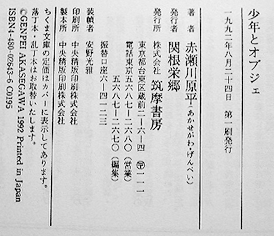 少年とオブジェ
一九九二年八月二十四日　第一刷発行
著者　赤瀬川原平（あかせがわ・げんぺい）
発行者　関根栄郷
発行所　株式会社　筑摩書房
東京都台東区蔵前二―六―四　〒一一一
電話東京五六八七―二六七〇（編集）
振替口座六―四一二三
装幀者　安野光雅
印刷所　中央精版印刷株式会社
製本所　中央精版印刷株式会社
ちくま文庫の定価はカバーに表示してあります。
落丁本・乱丁本はお取替いたします。
©GENPEI AKASEGAWA 1992 Printed in Japan
ISBN4-480-02643-6 C0195